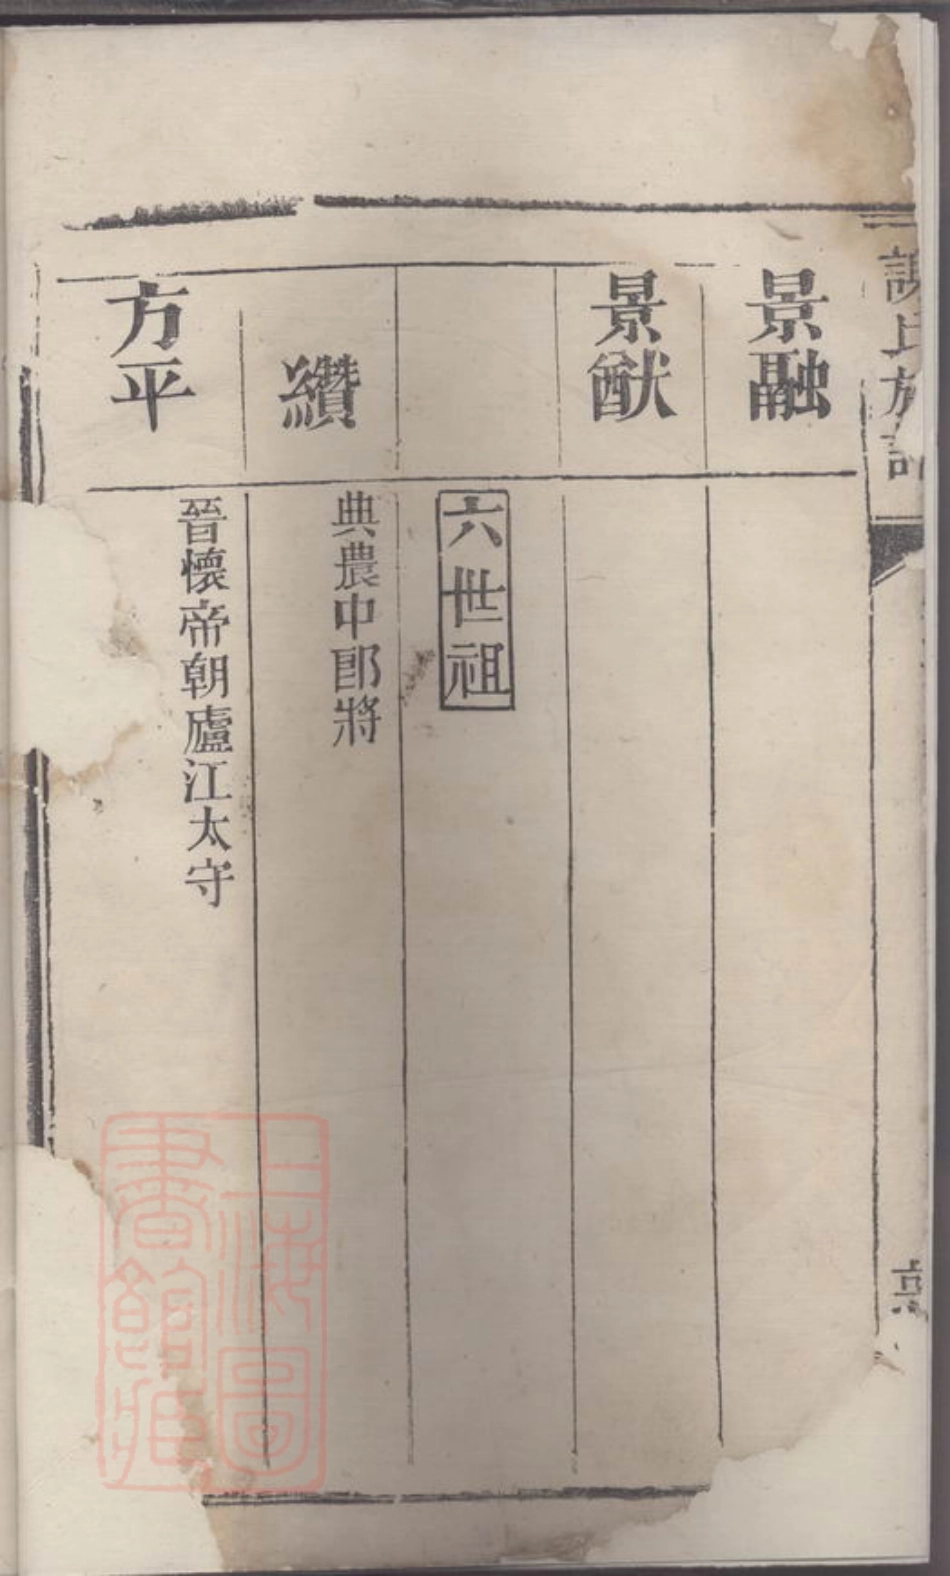 謝氏族譜
景融
景猷
六世祖
纘
典農中郎將
方平
晉懷帝朝廬江太守
上海圖
書館藏